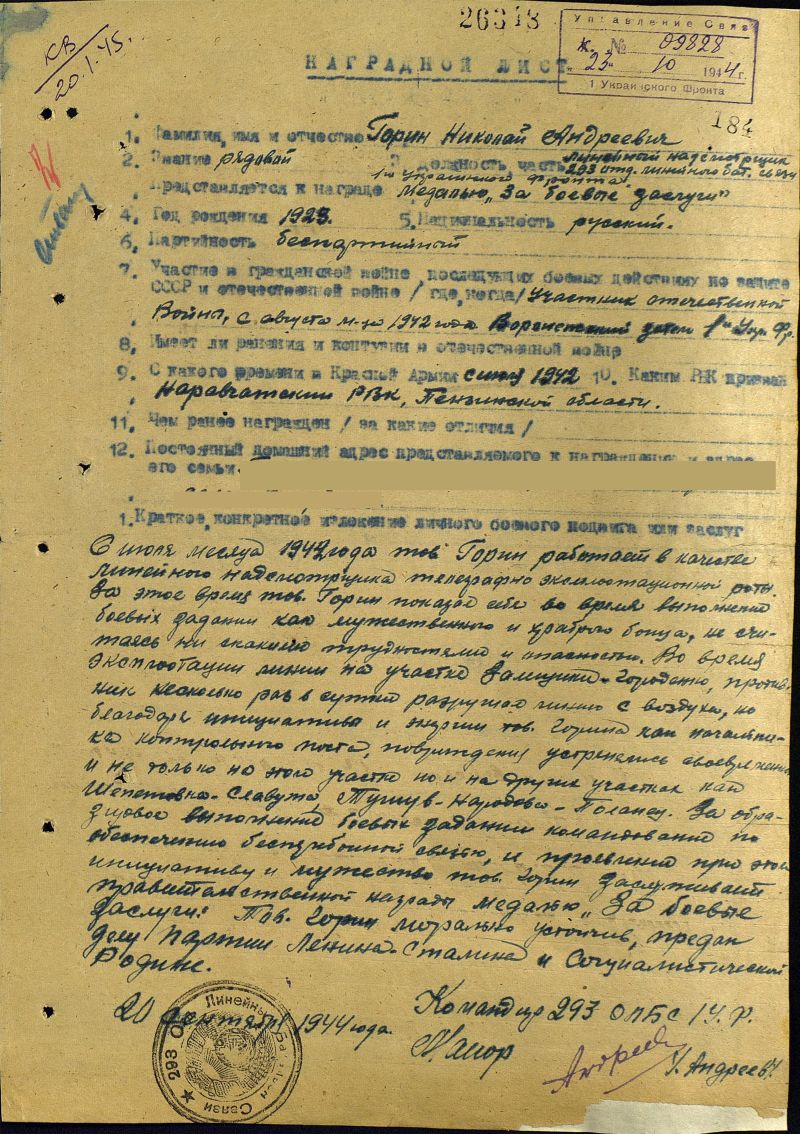 26348
Управление Связи
К. № 09828
"23" 10 1944 г.
1 Украинского Фронта
КВ
20.1.45.
НАГРАДНОЙ ЛИСТ
184
1. Фамилия, имя и отчество Горин Николай Андреевич
2. Звание рядовой 3. Должность, часть линейный надсмотрщик
293 отд. линейного бат. связи
1го Украинского фронта.
Представляется к награде Медалью „За боевые заслуги"
4. Год рождения 1923. 5. Национальность русский.
6. Партийность беспартийный
7. Участие в гражданской войне, последующих боевых действиях по защите
СССР и отечественной войне / где, когда / Участник отечественной
Войны, с августа м-ца 1942 года Воронежский затем 1й Укр. Фр.
8. Имеет ли ранения и контузии в отечественной войне
9. С какого времени в Красной Армии с июля 1942 10. Каким РВК призван
Наровчатским РВК, Пензинской области.
11. Чем ранее награжден / за какие отличия /
12. Постоянный домашний адрес представляемого к награждению и адрес
его семьи.
1. Краткое, конкретное изложение личного боевого подвига или заслуг
С июля месяца 1942 года тов. Горин работает в качестве
линейного надсмотрщика телеграфно эксплоатационной роты.
За этое время тов. Горин показал себе во время выполнения
боевых задании как мужественного и храброго бойца, не счи-
таясь ни скакими трудностями и опасностью. Во время
эксплоотации линии на участке Залищики-Городенко, против-
ник несколько раз в сутки разрушал линию с воздуха, но
благодаря инициативы и энергии тов. Горина как начальни-
ка контрольного поста, повреждения устронялись своевременно
и не только на этом участке но и на других участках как
Шепетовка-Славута, Тушув-Народова-Поланец. За обра-
зцовое выполнение боевых задании командования по
обеспечению бесперебойной связью, и проевления при этом
инициативу и мужество тов. Горин заслуживает
правительственной награды медалью „За боевые
заслуги". Тов. Горин морально устойчив, предан
делу Партии Ленина-Сталина и Социалистической
Родине.
20 сентября 1944 года.
Командир 293 ОЛБС 1У.Ф.
Майор Андреев /Андреев/.
293 О Линейный Батальон Связи